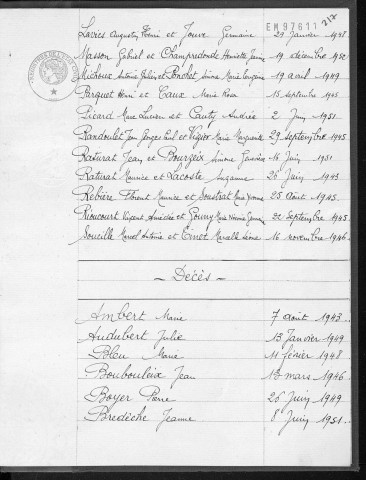 EM 97611 217
Lavies Augustin Henri et Jouve Germaine 29 Janvier 1948
Masson Gabriel et Champredonde Henriette Jeanne 19 décembre 1952
Michoux Antoine Julien et Ponchet Simone Marie 19 avril 1949
Parquet Henri et Caux Marie Rosa 15 septembre 1945
Picard Marc Lucien et Cauty Andrée 2 Juin 1951
Randoulet Jean Georges Paul et Vigier Marie Marguerite 29 Septembre 1945
Raturat Jean et Bourzeix Simone 16 Juin 1951
Raturat Maurice et Lacoste Suzanne 26 Juin 1943
Rebière Florent Maurice et Soustrat Marie Yvonne 25 août 1945
Rioucourt Vincent Amédée et Goumy Marie 22 Septembre 1945
Souille Marcel Antoine et Cinet Marcelle 16 novembre 1946
- Décès -
Ambert Marie 7 août 1943
Audubert Julie 13 Janvier 1949
Bleu Marie 11 février 1948
Boubouleix Jean 13 mars 1946
Boyer Pierre 26 Juin 1949
Bredèche Jeanne 8 Juin 1951